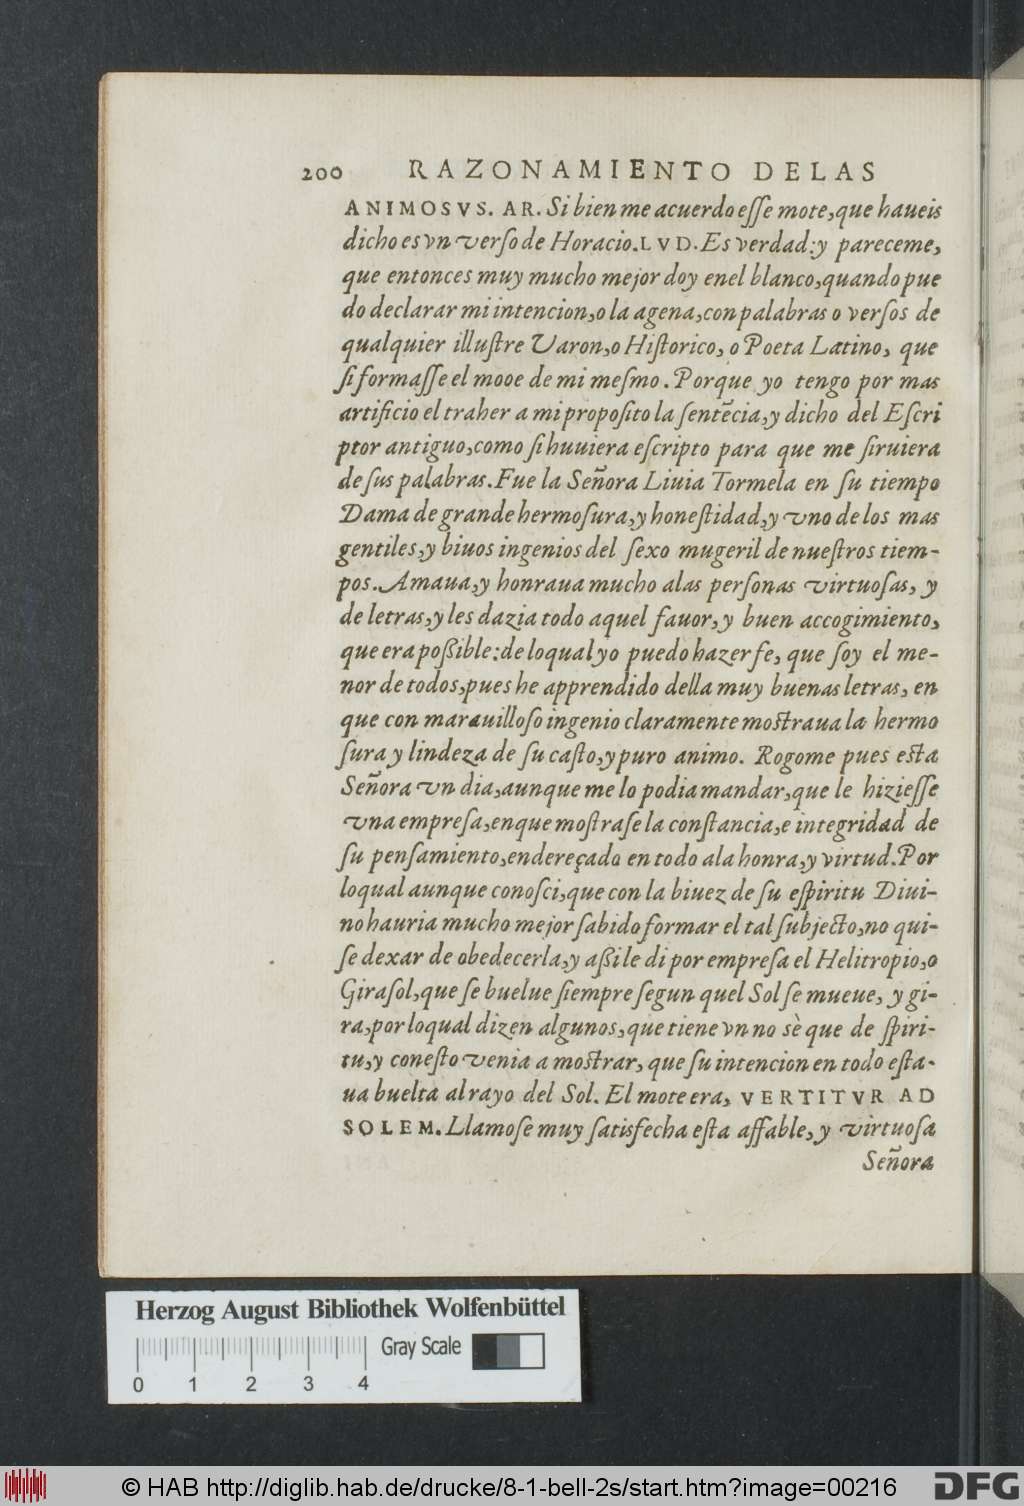 200 RAZONAMIENTO DELAS
ANIMOSVS. AR. Si bien me acuerdo esse mote, que haueis
dicho es vn verso de Horacio. LVD. Es verdad: y pareceme,
que entonces muy mucho mejor doy enel blanco, quando pue
do declarar mi intencion, o la agena, con palabras o versos de
qualquier illustre Varon, o Historico, o Poeta Latino, que
si formasse el mooe de mi mesmo. Porque yo tengo por mas
artificio el traher a mi proposito la sentẽcia, y dicho del Escri
ptor antiguo, como si huuiera escripto para que me siruiera
de sus palabras. Fue la Señora Liuia Tormela en su tiempo
Dama de grande hermosura, y honestidad, y vno de los mas
gentiles, y biuos ingenios del sexo mugeril de nuestros tiem-
pos. Amaua, y honraua mucho alas personas virtuosas, y
de letras, y les dazia todo aquel fauor, y buen accogimiento,
que era poßible: de loqual yo puedo hazer fe, que soy el me-
nor de todos, pues he apprendido della muy buenas letras, en
que con marauilloso ingenio claramente mostraua la hermo
sura y lindeza de su casto, y puro animo. Rogome pues esta
Señora vn dia, aunque me lo podia mandar, que le hiziesse
vna empresa, enque mostrase la constancia, e integridad de
su pensamiento, endereçado en todo ala honra, y virtud. Por
loqual aunque conosci, que con la biuez de su espiritu Diui-
no hauria mucho mejor sabido formar el tal subjecto, no qui-
se dexar de obedecerla, y aßi le di por empresa el Helitropio, o
Girasol, que se buelue siempre segun quel Sol se mueue, y gi-
ra, por loqual dizen algunos, que tiene vn no sè que de spiri-
tu, y conesto venia a mostrar, que su intencion en todo esta-
ua buelta al rayo del Sol. El mote era, VERTITVR AD
SOLEM. Llamose muy satisfecha esta affable, y virtuosa
Señora
Herzog August Bibliothek Wolfenbüttel
Gray Scale
0 1 2 3 4
© HAB http://diglib.hab.de/drucke/8-1-bell-2s/start.htm?image=00216
DFG